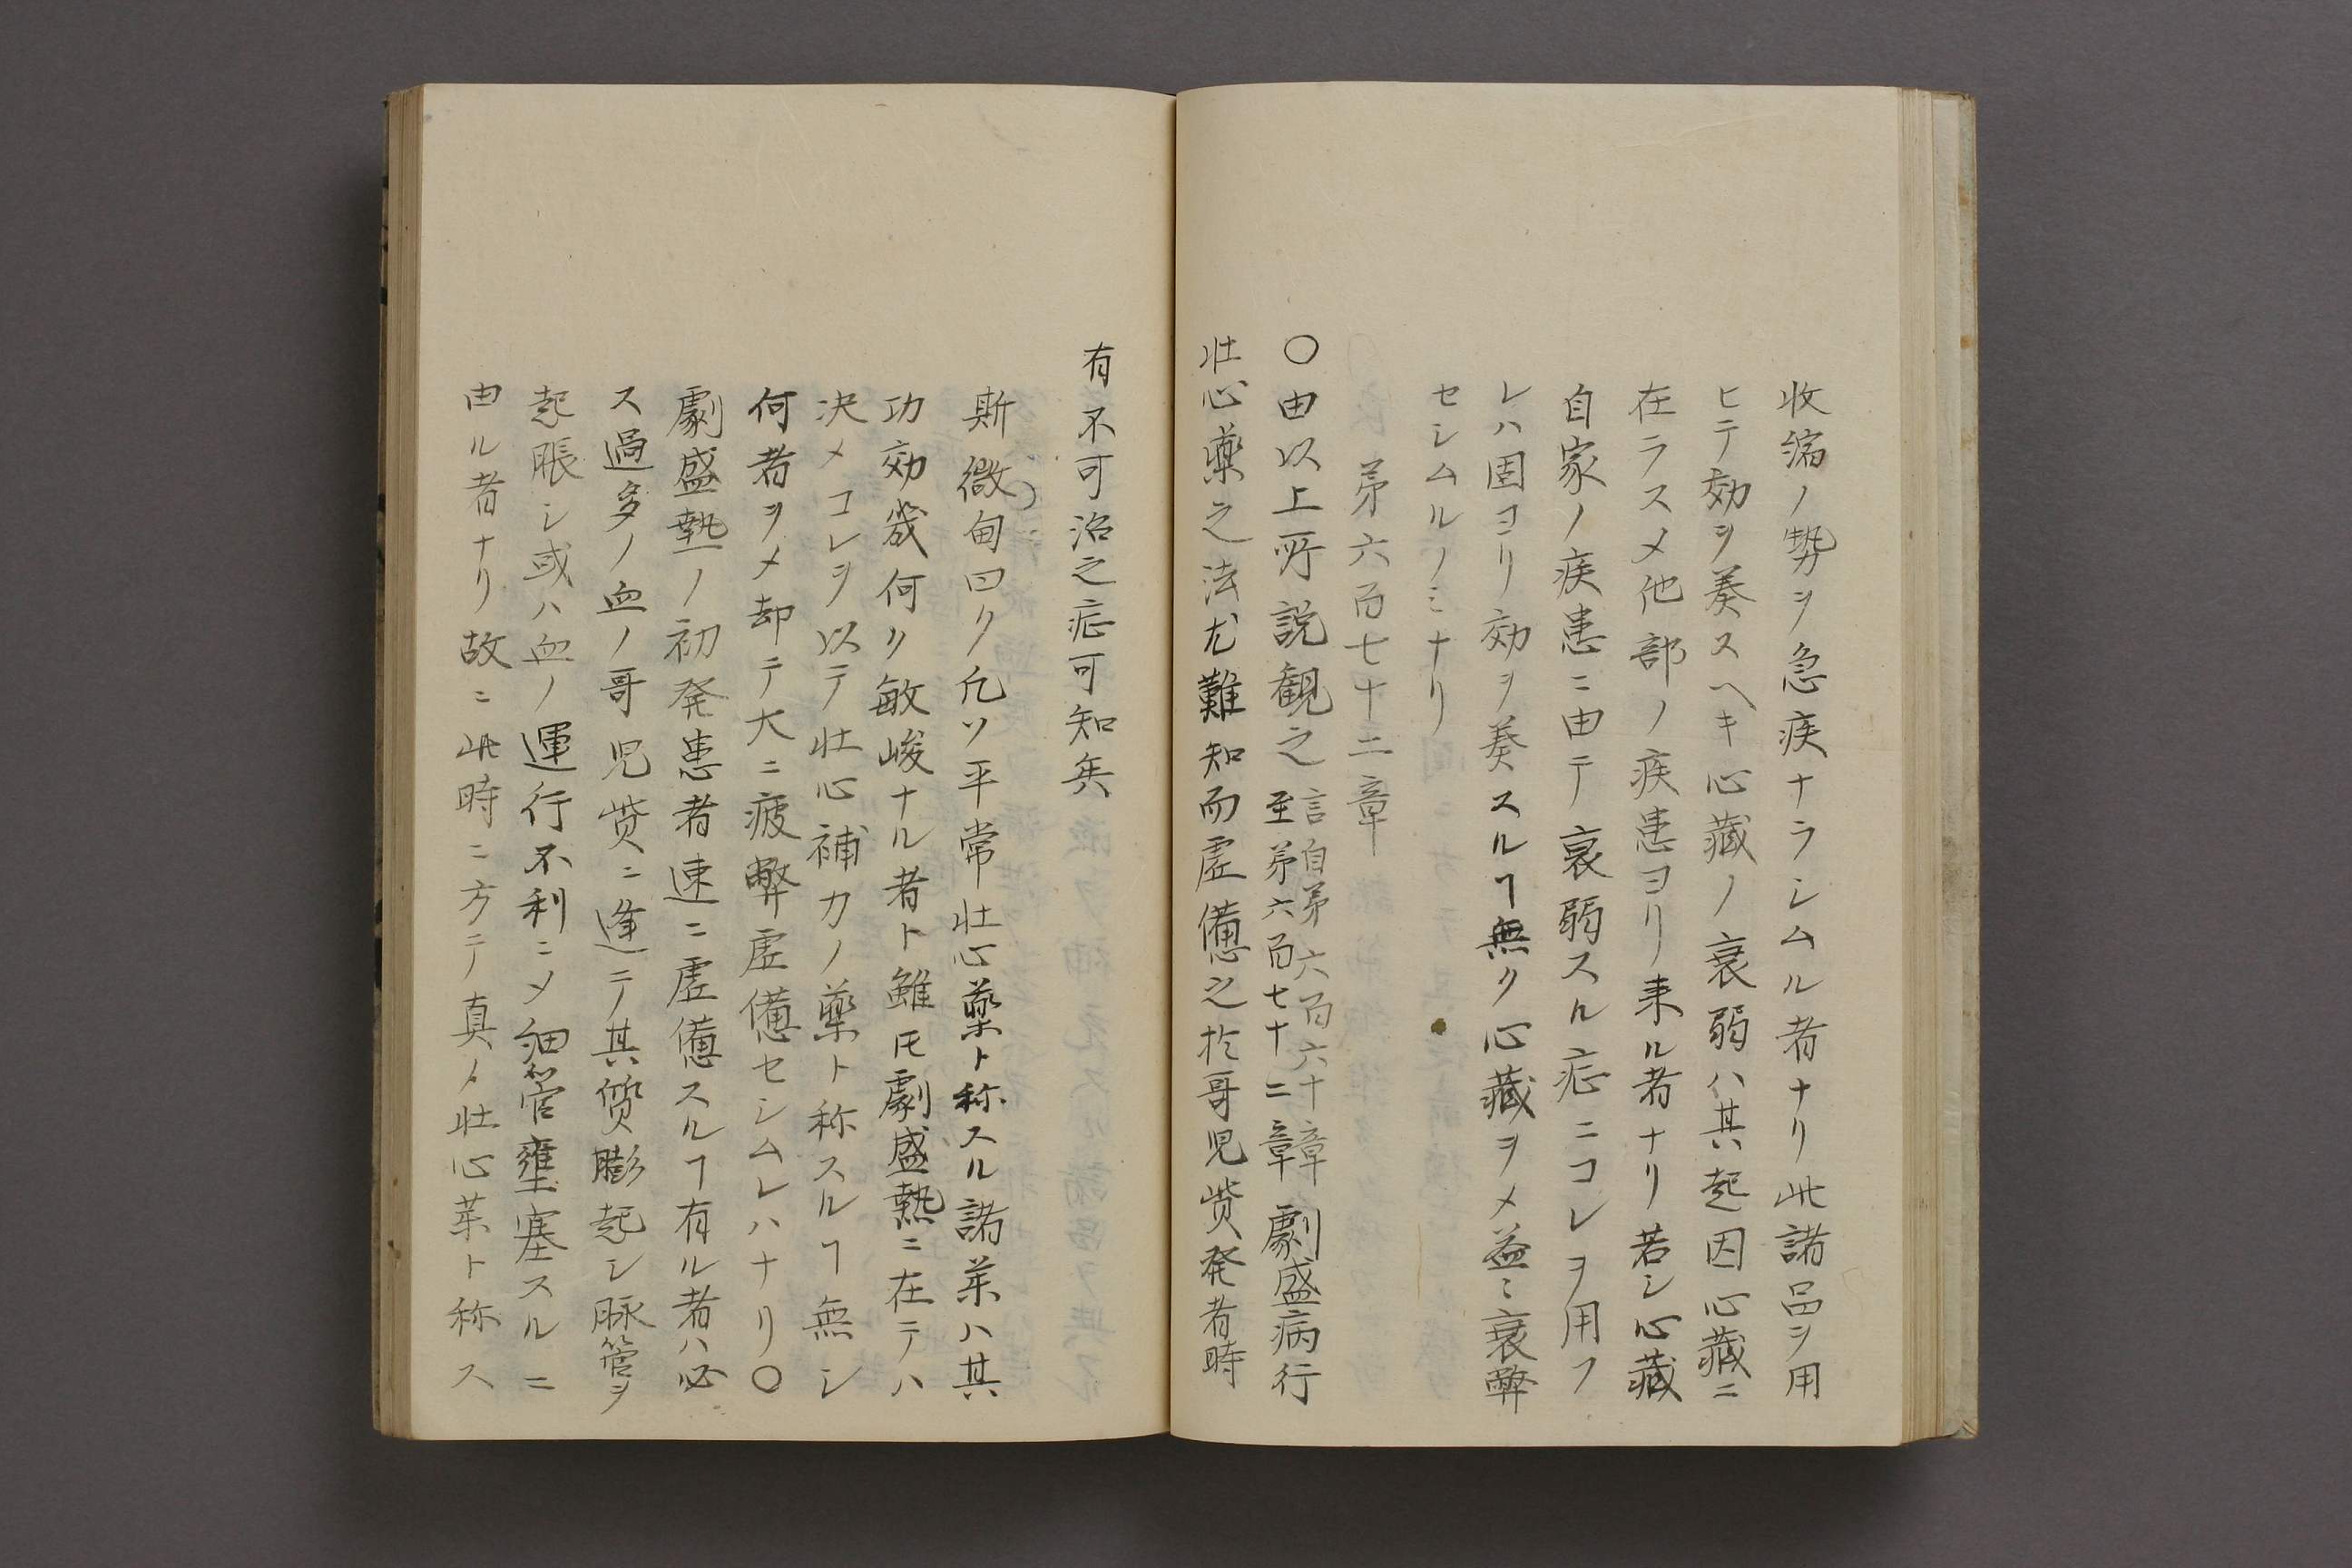 收縮ノ勢ヲ急疾ナラシムル者ナリ此諸品ヲ用
ヒテ効ヲ奏スヘキ心藏ノ衰弱ハ其起因心藏ニ
在ラスメ他部ノ疾患ヨリ来ル者ナリ若シ心藏
自家ノ疾患ニ由テ衰弱スル症ニコレヲ用フ
レハ固ヨリ効ヲ奏スルヿ無ク心藏ヲメ益ミ衰弊
セシムルノミナリ
第六百七十二章
〇由以上所説観之言自第六百六十章至第六百七十二章劇盛病行
壮心藥之法尤難知而虚憊之於哥児焋発者時
有不可治之症可知矣
斯微甸曰ク凢ソ平常壮心藥ト称スル諸茱ハ其
功効幾何ク敏峻ナル者ト雖𪜈劇盛熱ニ在テハ
决メコレヲ以テ壮心補力ノ藥ト称スルヿ無シ
何者ヲメ却テ大ニ疲弊虚憊セシムレハナリ〇
劇盛熱ノ初発患者速ニ虚憊スルヿ有ル者ハ必
ス過多ノ血ノ哥児焋ニ逢テ其質膨起シ脉管ヲ
起脹シ或ハ血ノ運行不利ニメ細管壅塞スルニ
由ル者ナリ故ニ此時ニ方テ真ノ壮心茱ト称ス